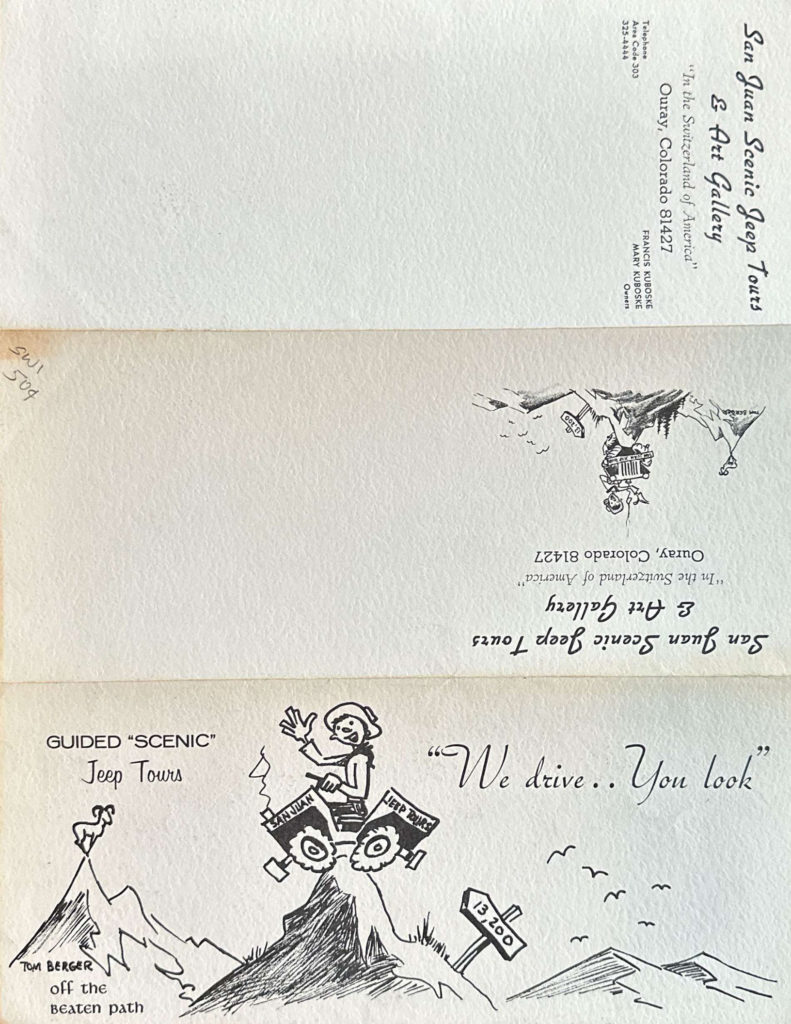 San Juan Scenic Jeep Tours
& Art Gallery
"In the Switzerland of America"
Ouray, Colorado 81427
Telephone
Area Code 303
325-4444
FRANCIS KUBOSKE
MARY KUBOSKE
Owners
50¢
San Juan Scenic Jeep Tours
& Art Gallery
"In the Switzerland of America"
Ouray, Colorado 81427
13,200
TOM BERGER
GUIDED "SCENIC"
Jeep Tours
"We drive.. You look"
SAN JUAN
JEEP TOURS
13,200
TOM BERGER
off the
BEATEN PATH